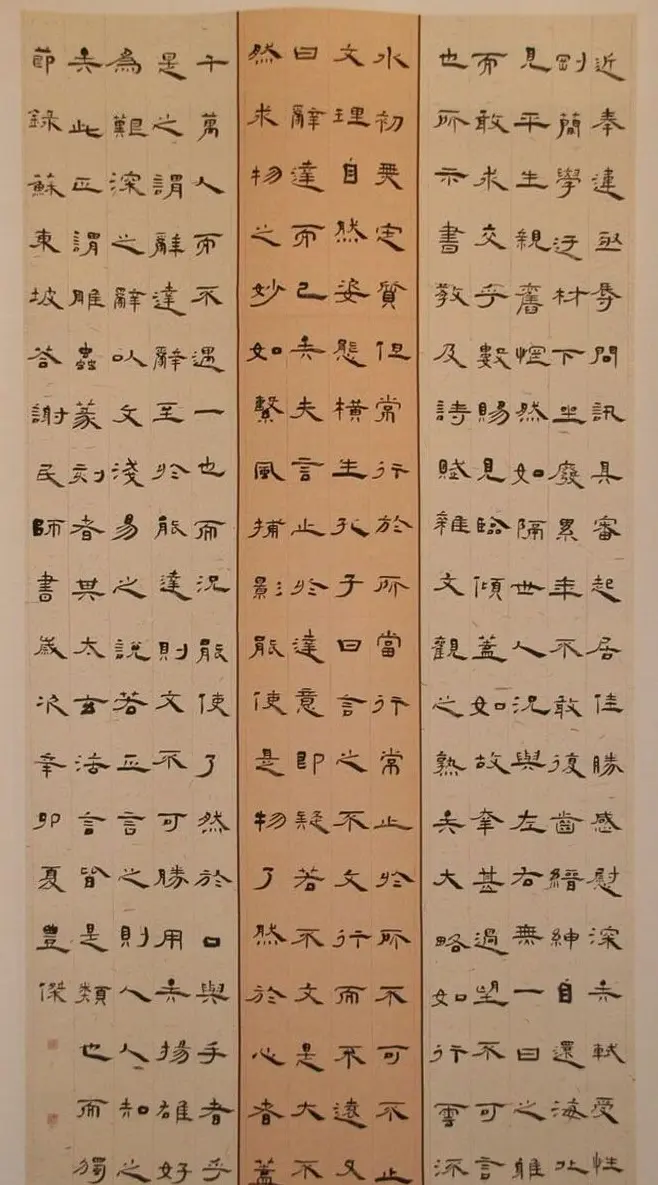 近奉違亟辱問訊具審起居佳勝感慰深矣軾受性
剛簡學迂材下坐廢累年不敢復齒縉紳自還海北
見平生親舊惘然如隔世人況與左右無一日之雅
而敢求交乎數賜見臨傾蓋如故幸甚過望不可言
也所示書教及詩賦雜文觀之熟矣大略如行雲流
水初無定質但常行於所當行常止於所不可不止
文理自然姿態橫生孔子曰言之不文行而不遠又
曰辭達而已矣夫言止於達意即疑若不文是大不
然求物之妙如繫風捕影能使是物了然於心者蓋
千萬人而不遇一也而況能使了然於口與手者乎
是之謂辭達辭至於能達則文不可勝用矣揚雄好
為艱深之辭以文淺易之說若正言之則人人知之
矣此正謂雕蟲篆刻者其太玄法言皆是類也而獨
節錄蘇東坡答謝民師書歲次辛卯夏豊傑